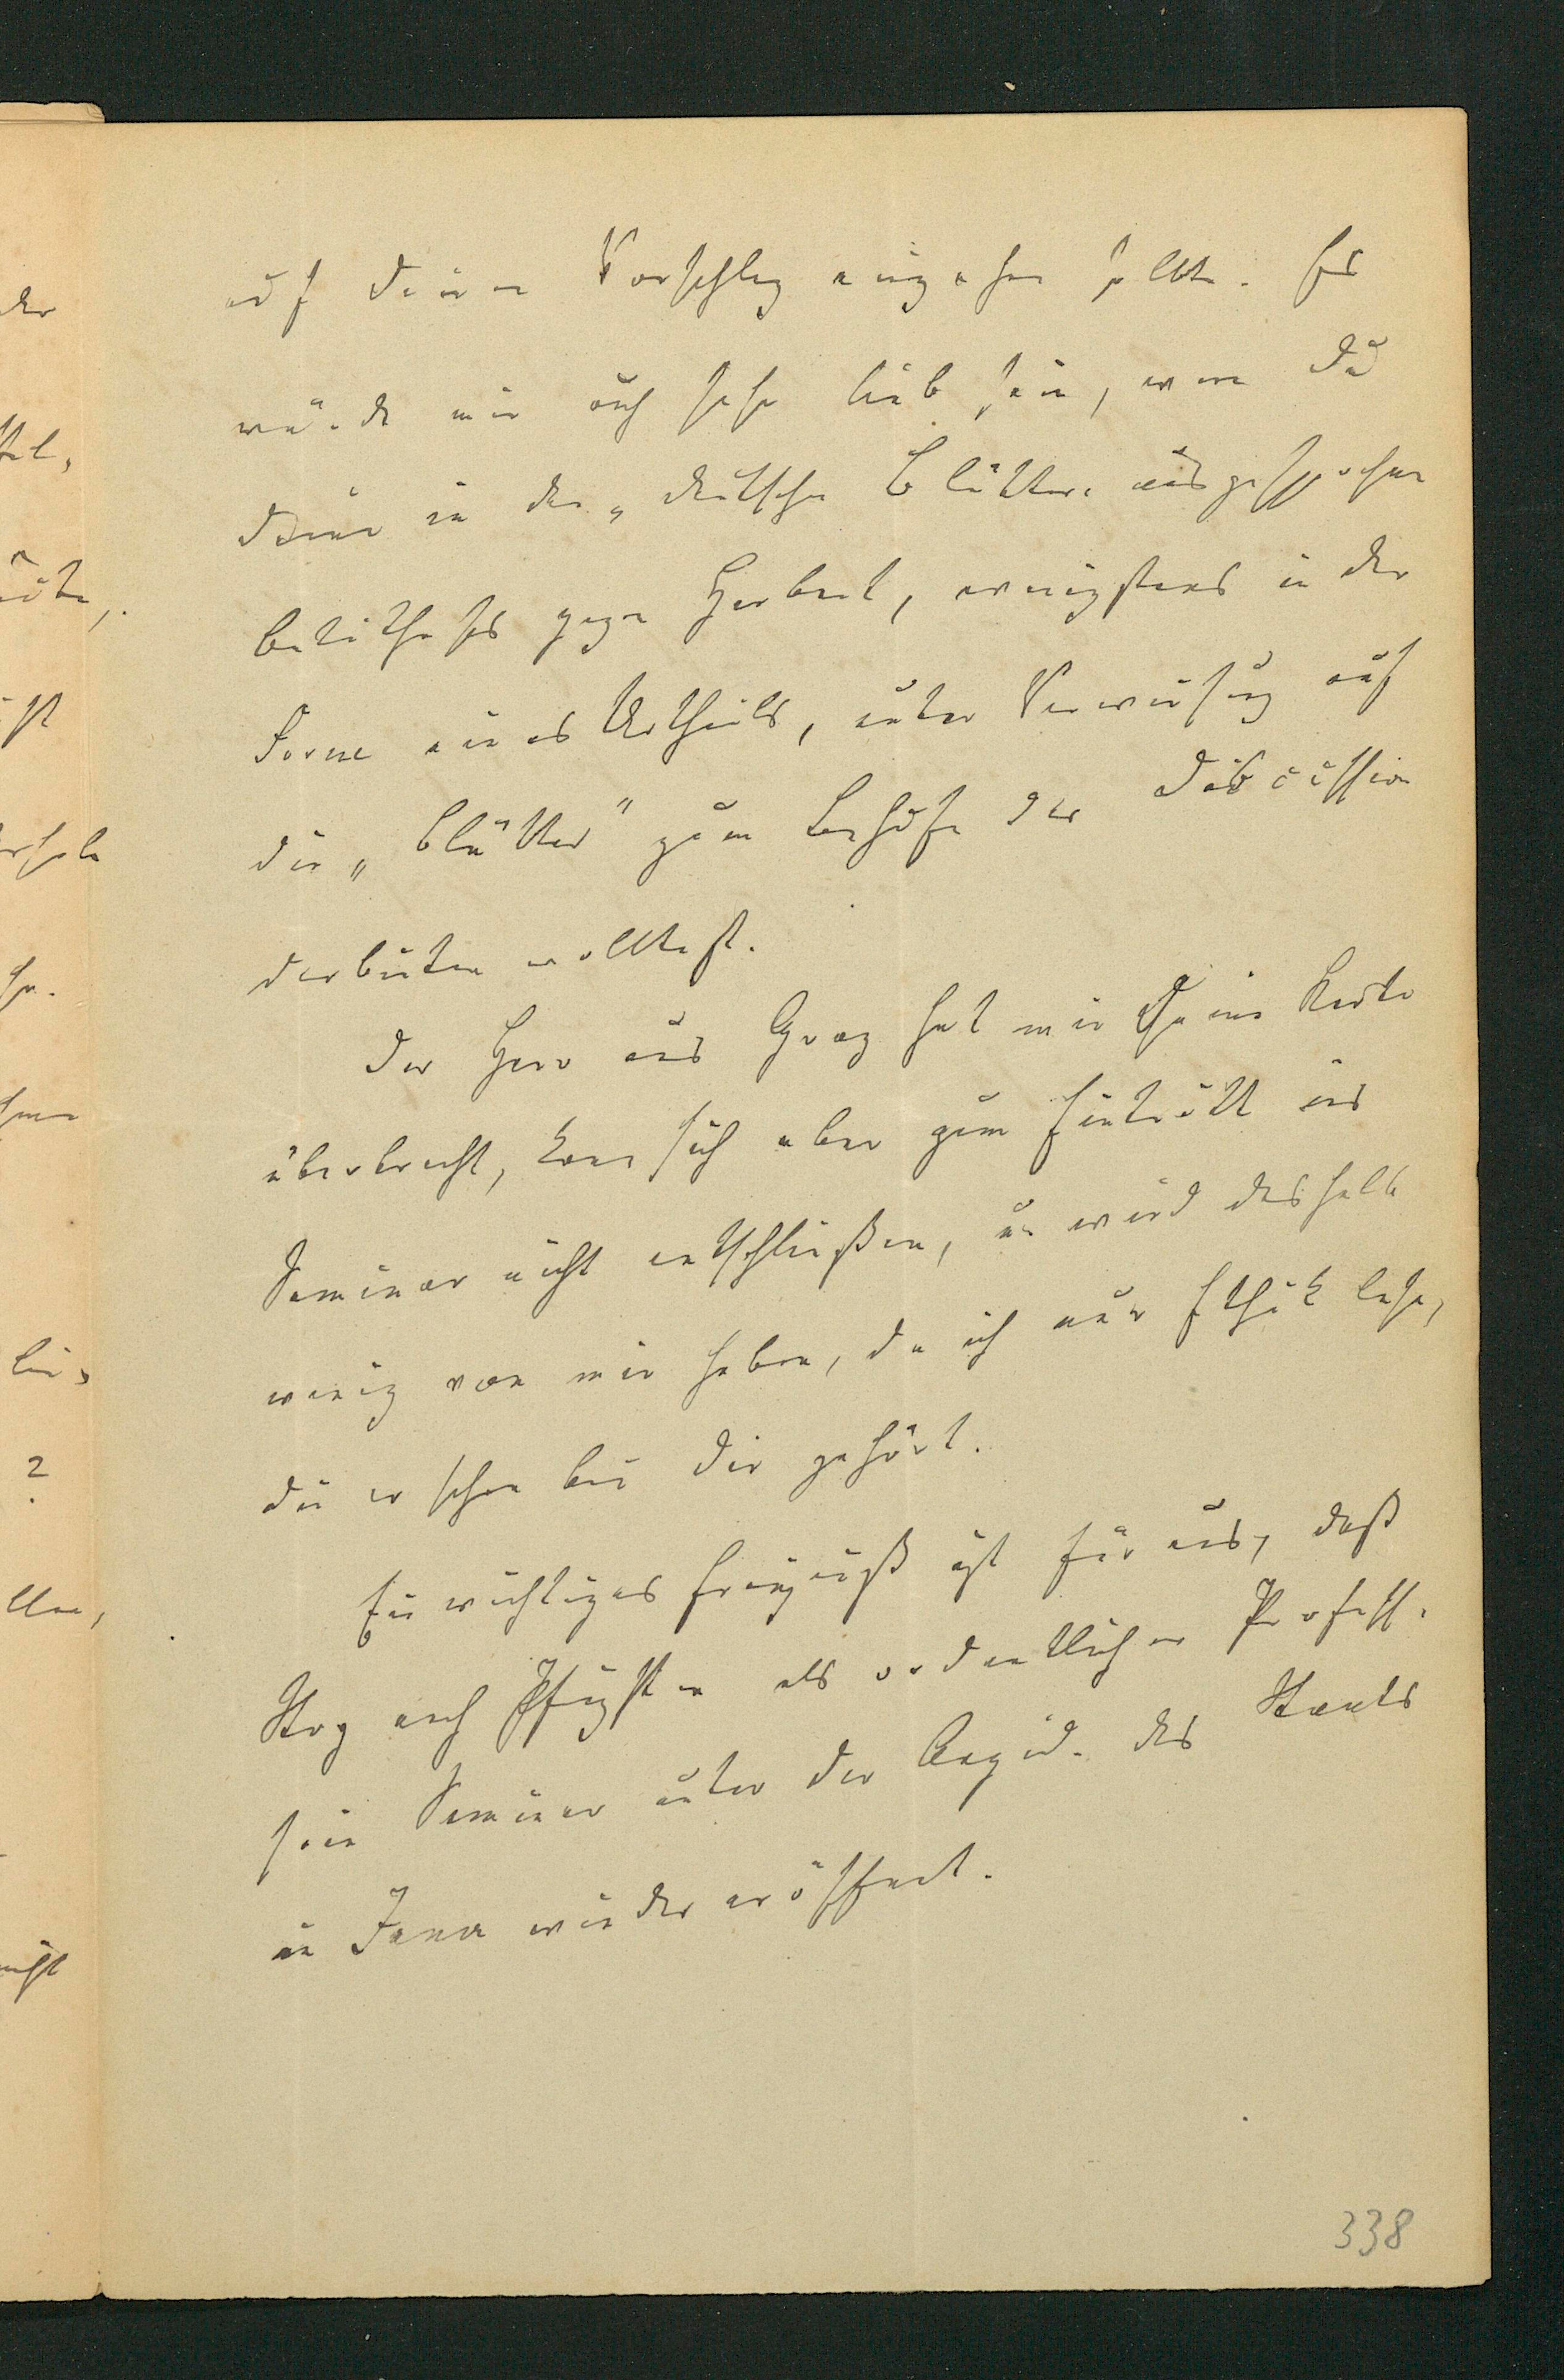 auf deinen Vorschlag eingehen sollte. Es
würde mir auch sehr lieb sein, wenn Du
Deine in den „deutschen Blättern ausgesprochene
gegen Herbart, wenigstens in der
Form eines Urtheils, unter Verweisung auf
die „Blätter" zum Behufe der Discussion
darbieten wolltest.
Der Herr aus Graz hat mir Deine Karte
überbracht, kann sich aber zum Eintritt ins
Seminar nicht entschließen, u. wird deshalb
wenig von mir haben, da ich nur Ethik lese,
die er schon bei Dir gehört.
Ein wichtiges Ereigniß ist für uns, daß
Stoy nach Pfingsten als ordentlicher Profess.
sein Seminar unter der Aegide des Staats
in Jena wieder eröffnet.
338